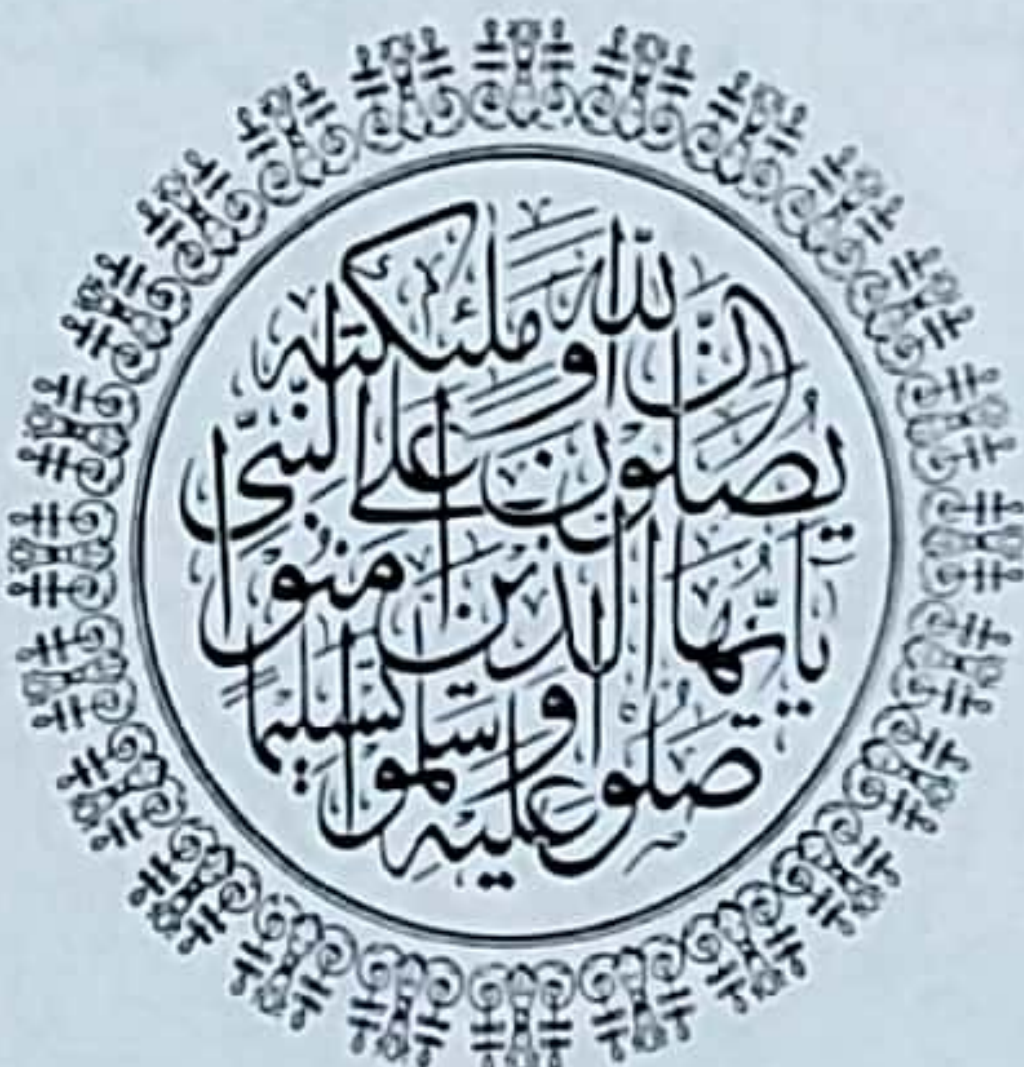 إن الله وملئكته
يصلون على النبي
يأيها الذين آمنوا
صلوا عليه وسلموا تسليما